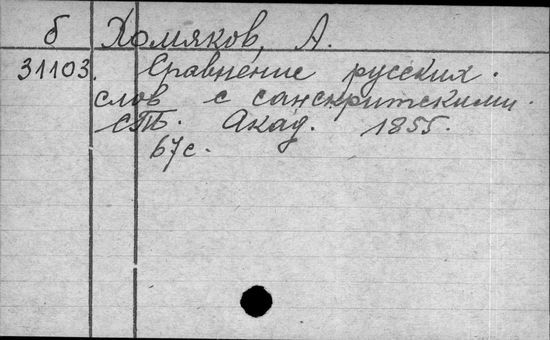 б Хомяков, А.
31103. Сравнение русских
слов с санскритскими.
СПб. Акад. 1855.
67с.